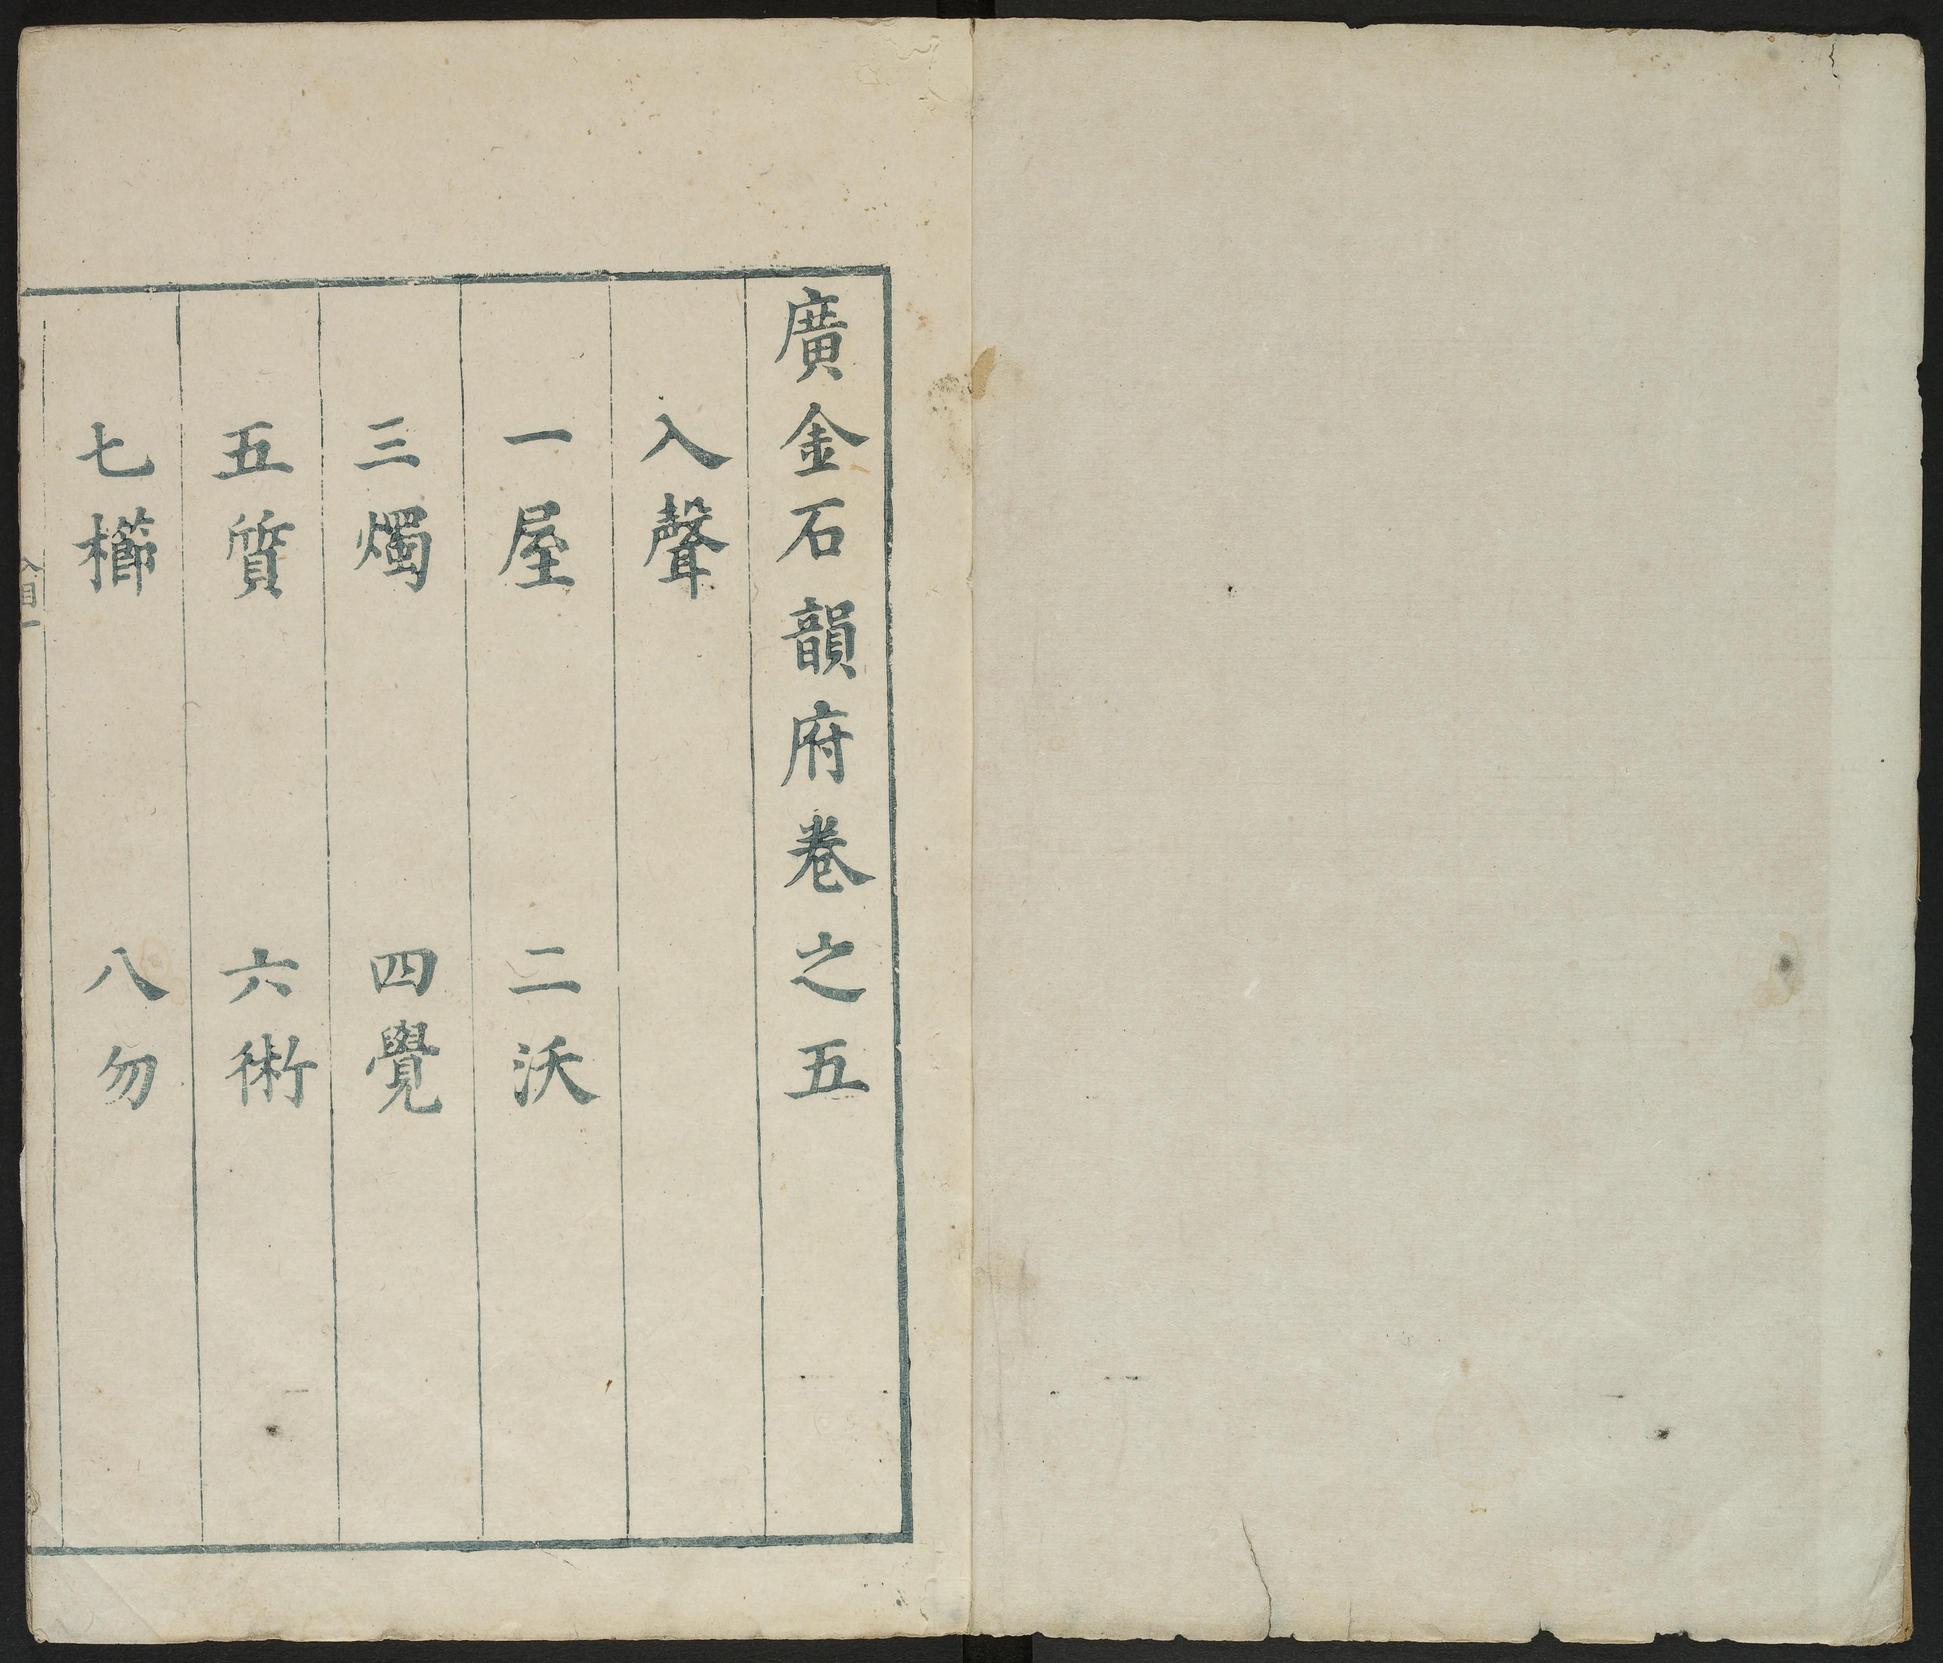 廣金石韻府卷之五
入聲
一屋 二沃
三燭 四覺
五質 六術
七櫛 八勿